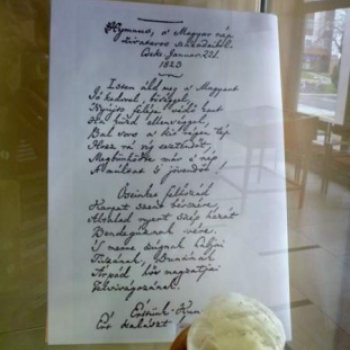 Hymnus, a' Magyar nép
zivataros századaiból.
Cseke, Januar. 22d.
1823
Isten áldd meg a' Magyart
Jó kedvvel, bőséggel,
Nyújts feléje védő kart
Ha küzd ellenséggel,
Bal sors a' kit régen tép
Hozz rá víg esztendőt,
Megbűnhödte már e' nép
A' múltat 's jövendőt!
Őseinket felhozád
Kárpát szent bérczére,
Általad nyert szép hazát
Bendegúznak vére.
'S merre zúgnak habjai
Tiszának, Dunának,
Árpád hős magzatjai
Felvirágozának.
Értünk Kun
Ért kalászt